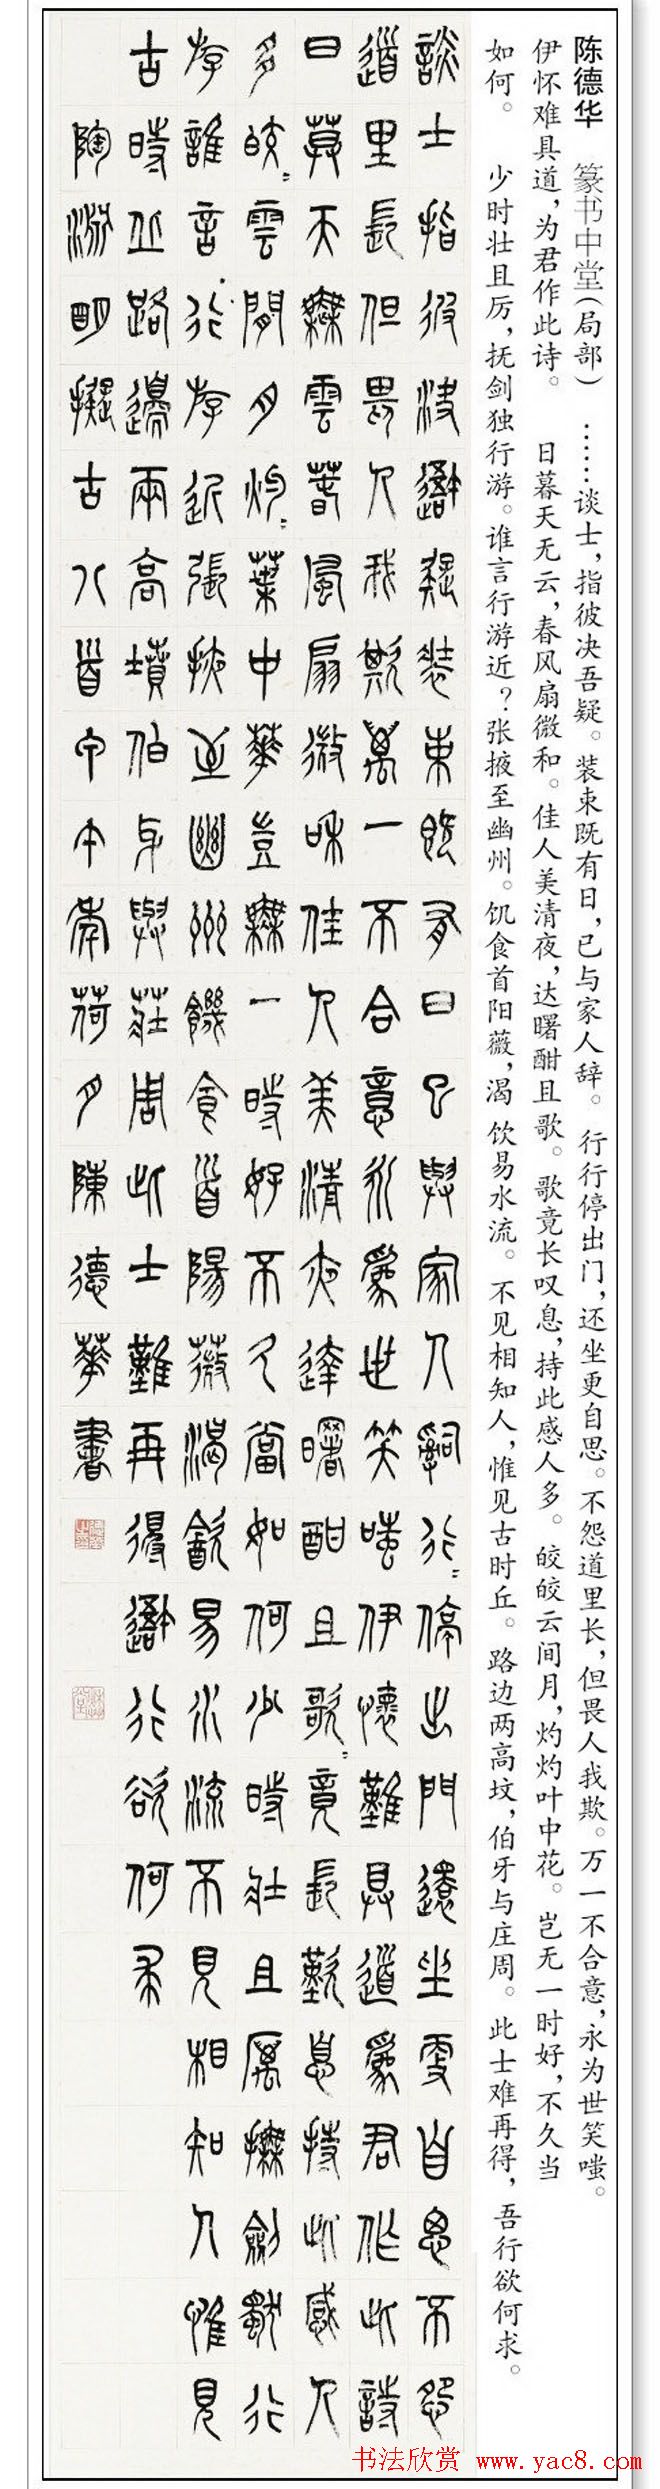 陈德华 篆书中堂(局部) ……谈士，指彼决吾疑。装束既有日，已与家人辞。行行停出门，还坐更自思。不怨道里长，但畏人我欺。万一不合意，永为世笑嗤。
伊怀难具道，为君作此诗。 日暮天无云，春风扇微和。佳人美清夜，达曙酣且歌。歌竟长叹息，持此感人多。皎皎云间月，灼灼叶中花。岂无一时好，不久当
如何。 少时壮且厉，抚剑独行游。谁言行游近？张掖至幽州。饥食首阳薇，渴饮易水流。不见相知人，惟见古时丘。路边两高坟，伯牙与庄周。此士难再得，吾行欲何求。
談士指彼決吾疑裝束既有日已與家人辭行=停出門還坐更自思不怨
道里長但畏人我欺萬一不合意永為世笑嗤伊懷難具道為君作此詩
日暮天無雲春風扇微和佳人美清夜達曙酣且歌=竟長歎息持此感人
多皎=雲間月灼=葉中華豈無一時好不久當如何少時壯且厲撫劍獨行
游誰言行游近張掖至幽州饑食首陽薇渴飲易水流不見相知人惟見
古時丘路邊兩高墳伯牙與莊周此士難再得吾行欲何求
陶淵明擬古八首甲午年荷月陳德華書
书法欣赏 www.yac8.com